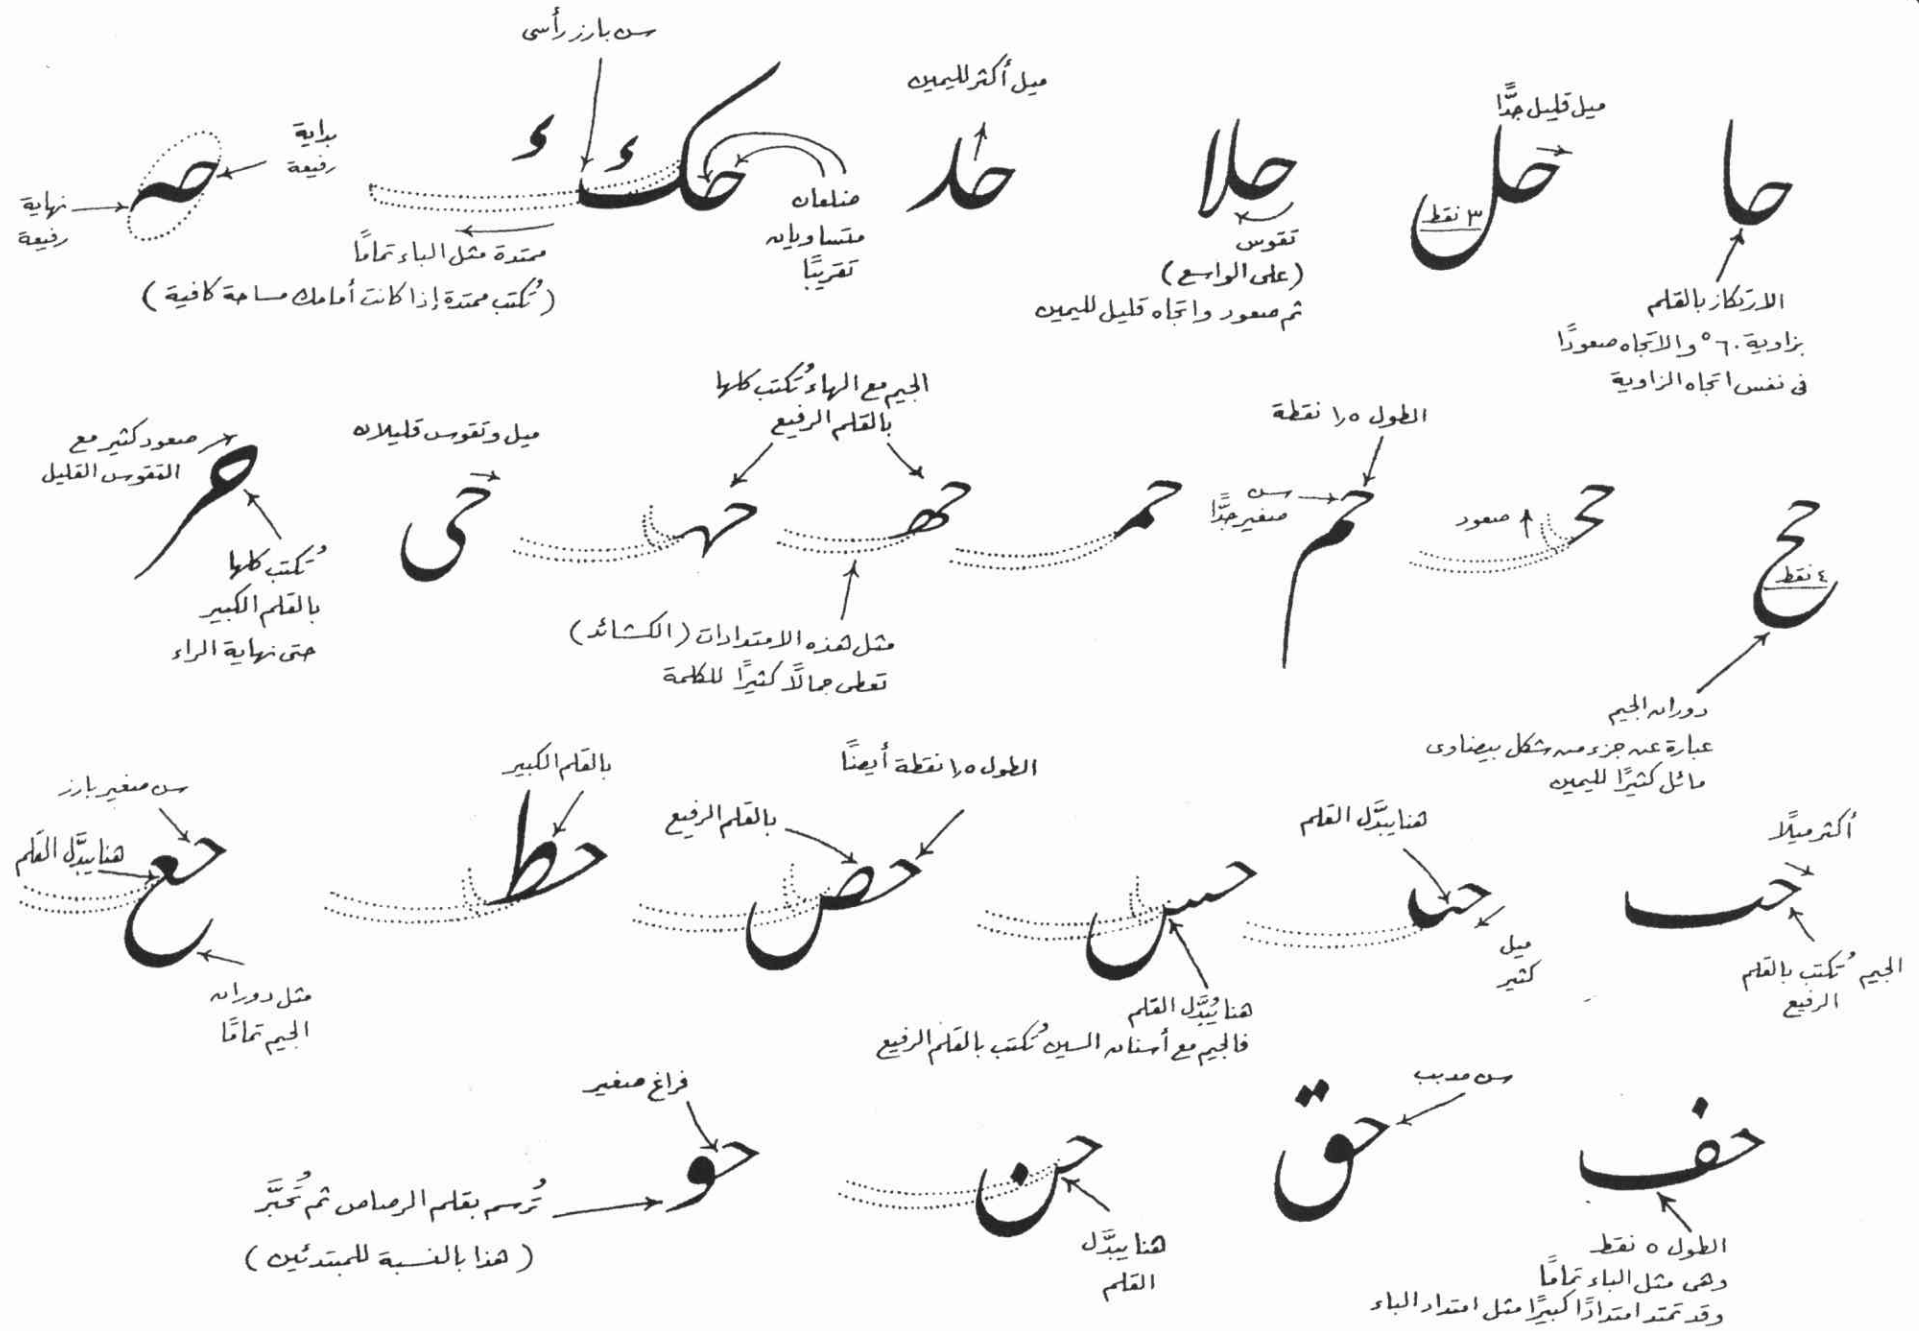 حا
الارتكاز بالقلم
بزاوية ٦٠° والاتجاه صعودًا
فى نفس اتجاه الزاوية
ميل قليل جدًّا
حل
٣ نقط
حلا
تقوس
(على الواسع)
ثم صعود واتجاه قليل لليمين
ميل أكثر لليمين
حد
سن بارز رأسى
حك ك ء
ضلعان
متساويان
تقريبًا
ممتدة مثل الباء تمامًا
(تُكتب ممتدة إذا كانت أمامك مساحة كافية)
حه
بداية
رفيعة
نهاية
رفيعة
حج
٤ نقط
دوران الجيم
عبارة عن جزء من شكل بيضاوى
مائل كثيرًا لليمين
صعود
الطول ١,٥ نقطة
سن
صغير جدًّا
حم
الجيم مع الهاء تُكتب كلها
بالقلم الرفيع
مثل هذه الامتدادات (الكشائد)
تعطى جمالًا كثيرًا للكلمة
ميل وتقوس قليلان
حى
صعود كثير مع
التقوس القليل
حر
تُكتب كلها
بالقلم الكبير
حتى نهاية الراء
أكثر ميلًا
حب
الجيم تُكتب بالقلم
الرفيع
هنا يبدَّل القلم
ميل
كثير
حس
هنا يُبدَّل القلم
فالجيم مع أسنان السين تُكتب بالقلم الرفيع
الطول ١,٥ نقطة أيضًا
بالقلم الرفيع
حص
بالقلم الكبير
حط
سن صغير بارز
هنا يبدَّل القلم
حع
مثل دوران
الجيم تمامًا
حف
الطول ٥ نقط
وهى مثل الباء تمامًا
وقد تمتد امتدادًا كبيرًا مثل امتداد الباء
سن مدبب
حق
حن
هنا يبدَّل
القلم
فراغ صغير
حو
تُرسم بقلم الرصاص ثم تُحبَّر
(هذا بالنسبة للمبتدئين)